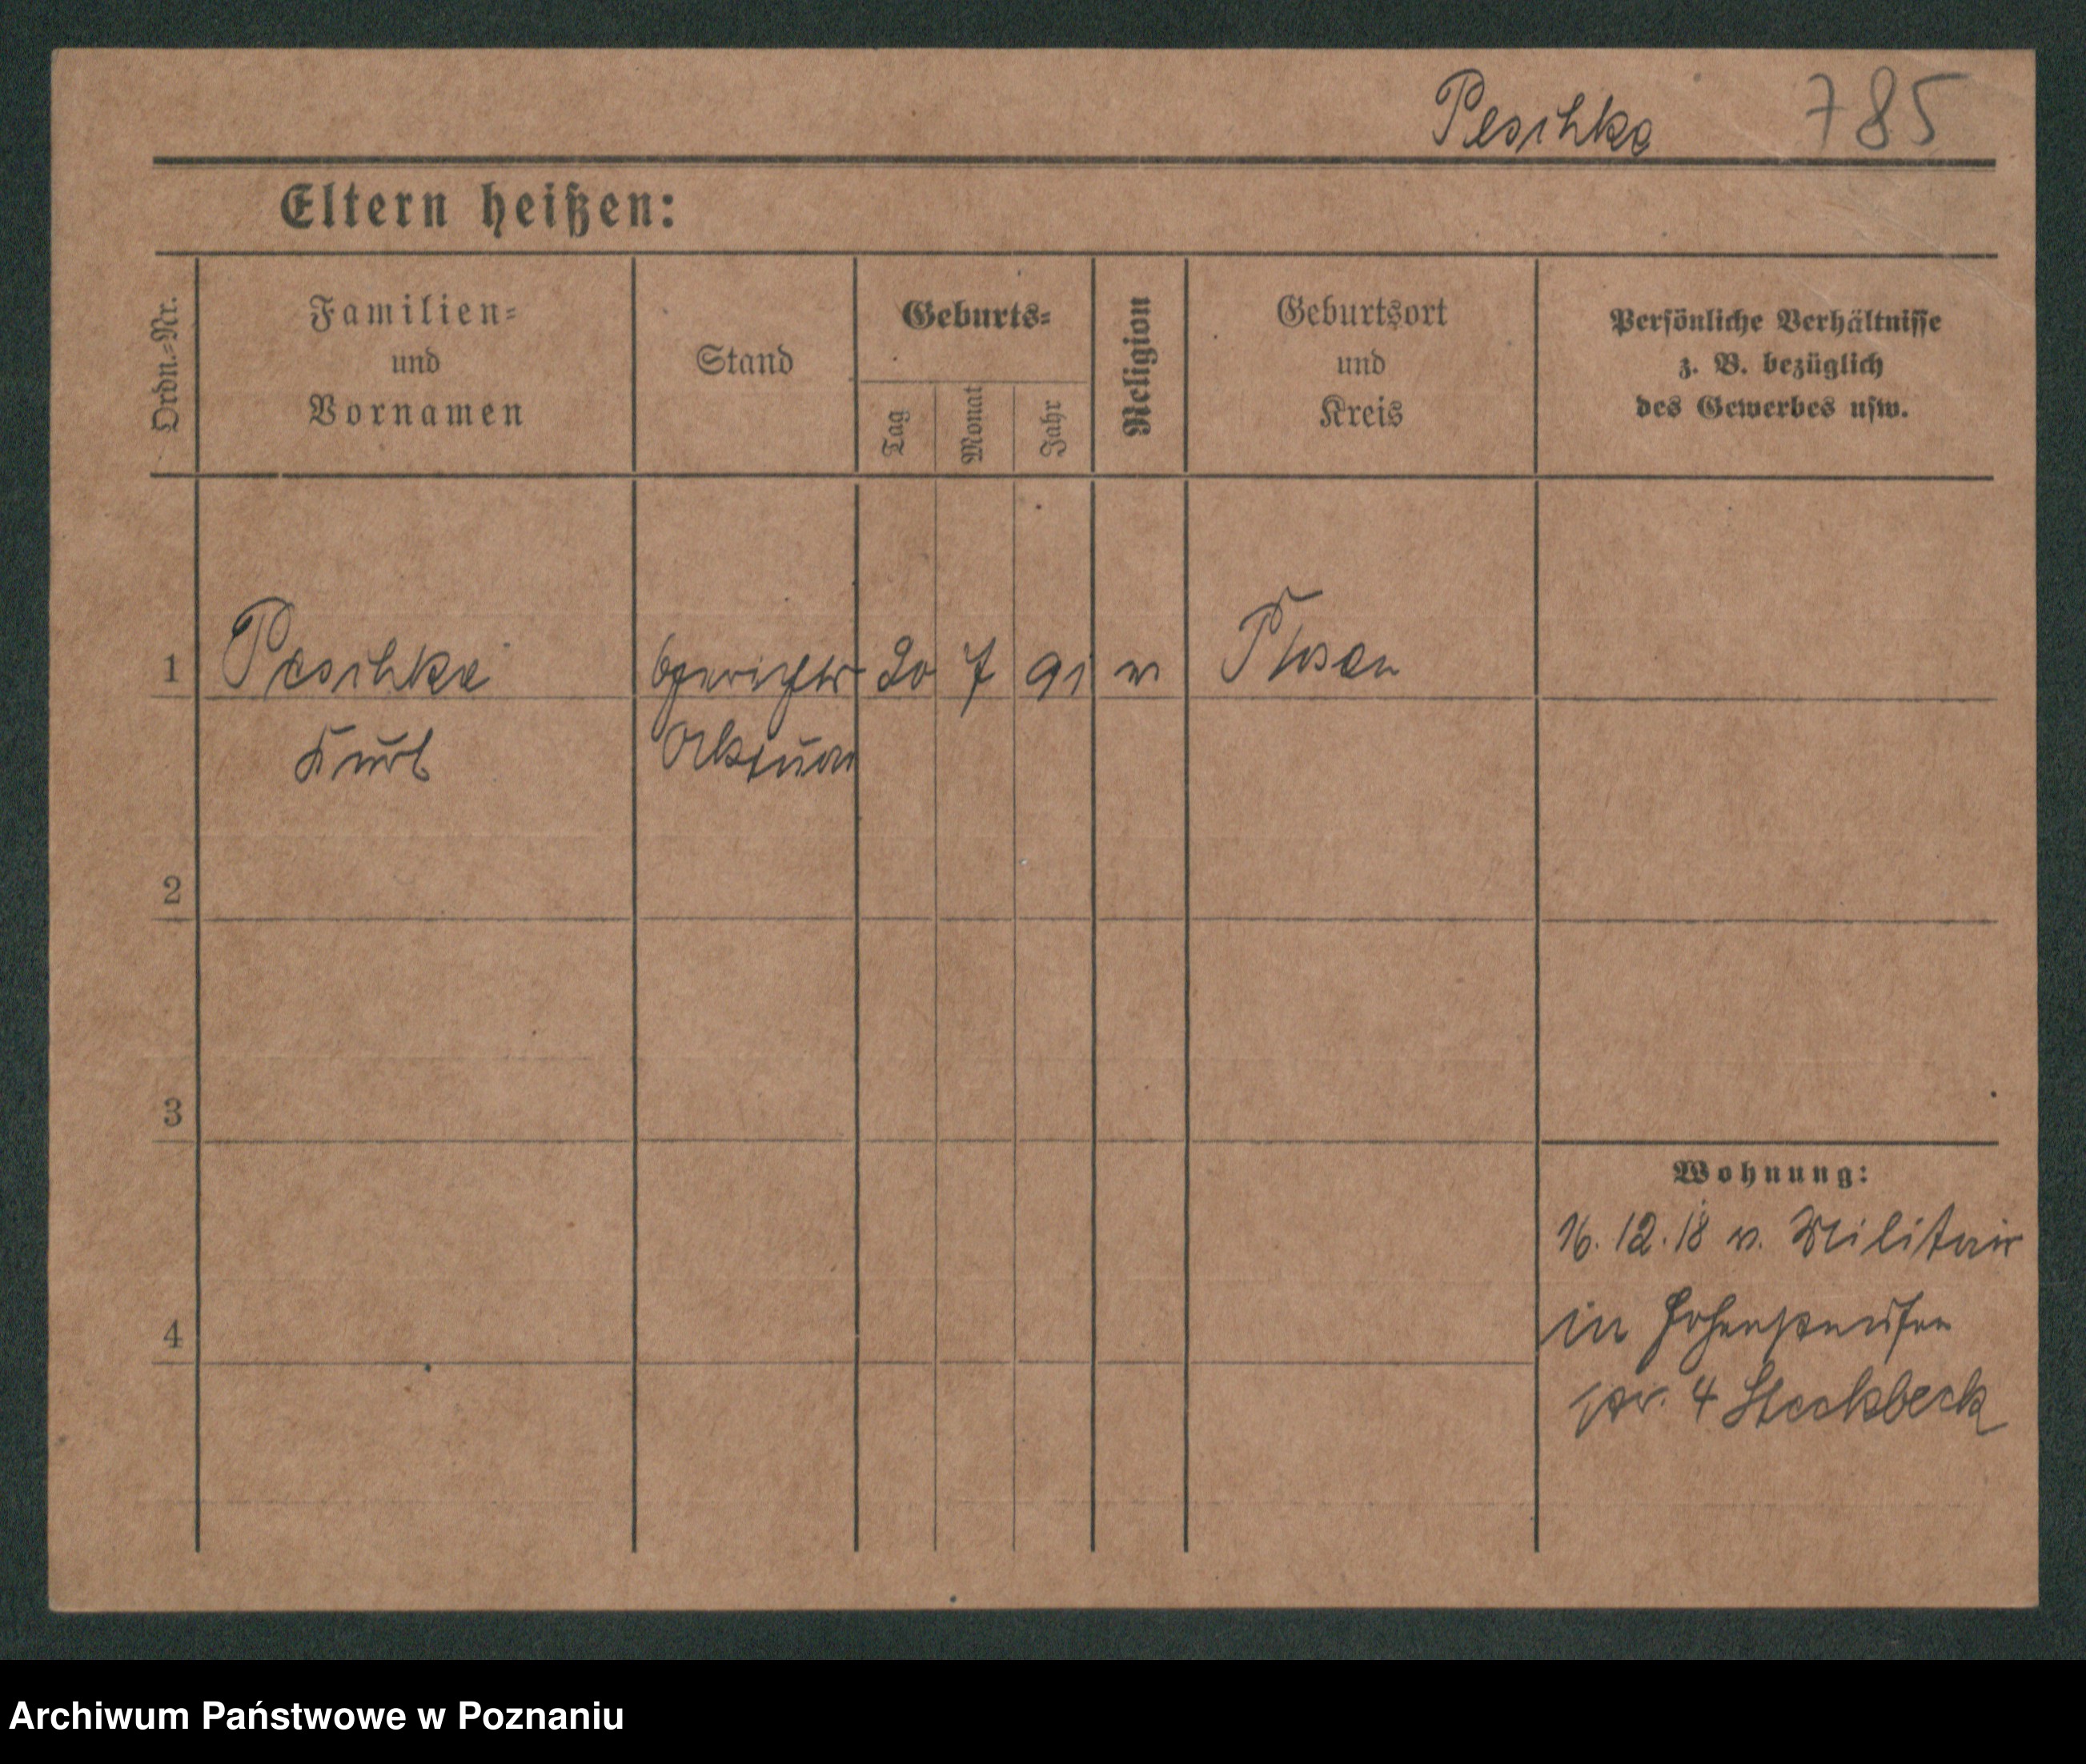 Peschke 785
Eltern heißen:
Ordn.=Nr.
Familien=
und
Vornamen
Stand
Geburts=
Tag
Monat
Jahr
Religion
Geburtsort
und
Kreis
Persönliche Verhältnisse
z. B. bezüglich
des Gewerbes usw.
1 Peschke Gerichts 20 7 91
Kurt Aktuar
2
3
4
Wohnung:
16.12.18 v. Militair
in
4 Steckbeck
Archiwum Państwowe w Poznaniu